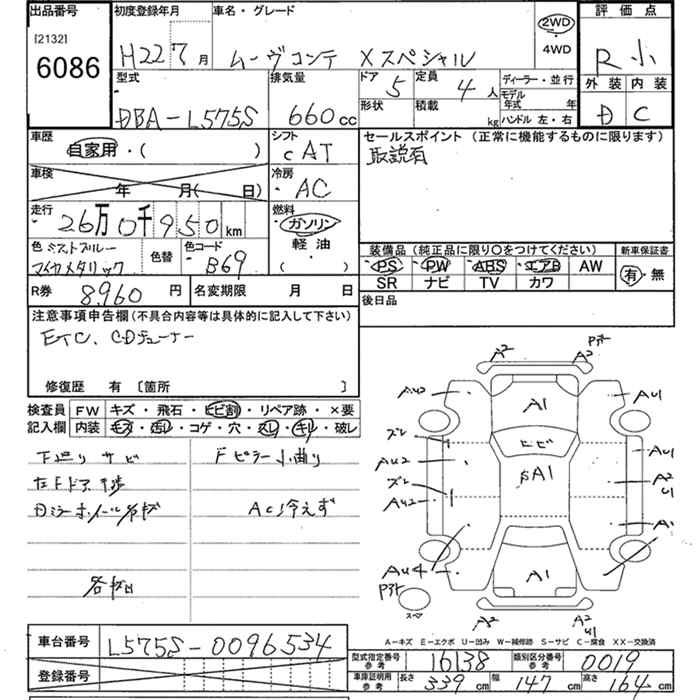 出品番号 初度登録年月 車名・グレード 2WD 評価点
[2132]
6086 H22 7月 ムーヴコンテ Xスペシャル 4WD R 小
型式 排気量 ドア 5 定員 4人 ディーラー・並行 外装 内装
DBA-L575S 660cc 形状 積載 kg モデル年式 年 ハンドル 左・右 D C
車歴 自家用・( ) シフト CAT セールスポイント (正常に機能するものに限ります)
取説有
車検 年 月( 日) 冷房 AC
走行 26万0千950km 燃料 ガソリン
軽油
( )
色 ミストブルーマイカメタリック 色替 色コード B69
装備品 (純正品に限り〇をつけてください) 新車保証書
PS PW ABS エアB AW 有・無
SR ナビ TV カワ
R券 8960円 名変期限 月 日 後日品
注意事項申告欄(不具合内容等は具体的に記入して下さい)
ETC、CDチューナー
修復歴 有 〔箇所 〕
検査員 FW キズ・飛石・ヒビ割・リペア跡・×要
記入欄 内装 キズ・汚レ・コゲ・穴・スレ・キレ・破レ
下廻りサビ Fピラー小曲り
左Fドア干渉
Dミラーホイールガキズ ACI冷えず
各サビ
A2 A2 Pｱﾄ
AU2 A1 AU1
ズレ ヒビ AU1
AU2 A1 A2
ズレ U1
AU2 A1
AU4 A1
Pｱﾄ
スペア A2 A2
U1
A-キズ E-エクボ U-凹み W-補修跡 S-サビ C-腐食 XX-交換済
車台番号 L575S-0096534
型式指定番号 参考 16138 類別区分番号 参考 0019
登録番号 車庫証明用 参考 長さ 339cm 幅 147cm 高さ 164cm